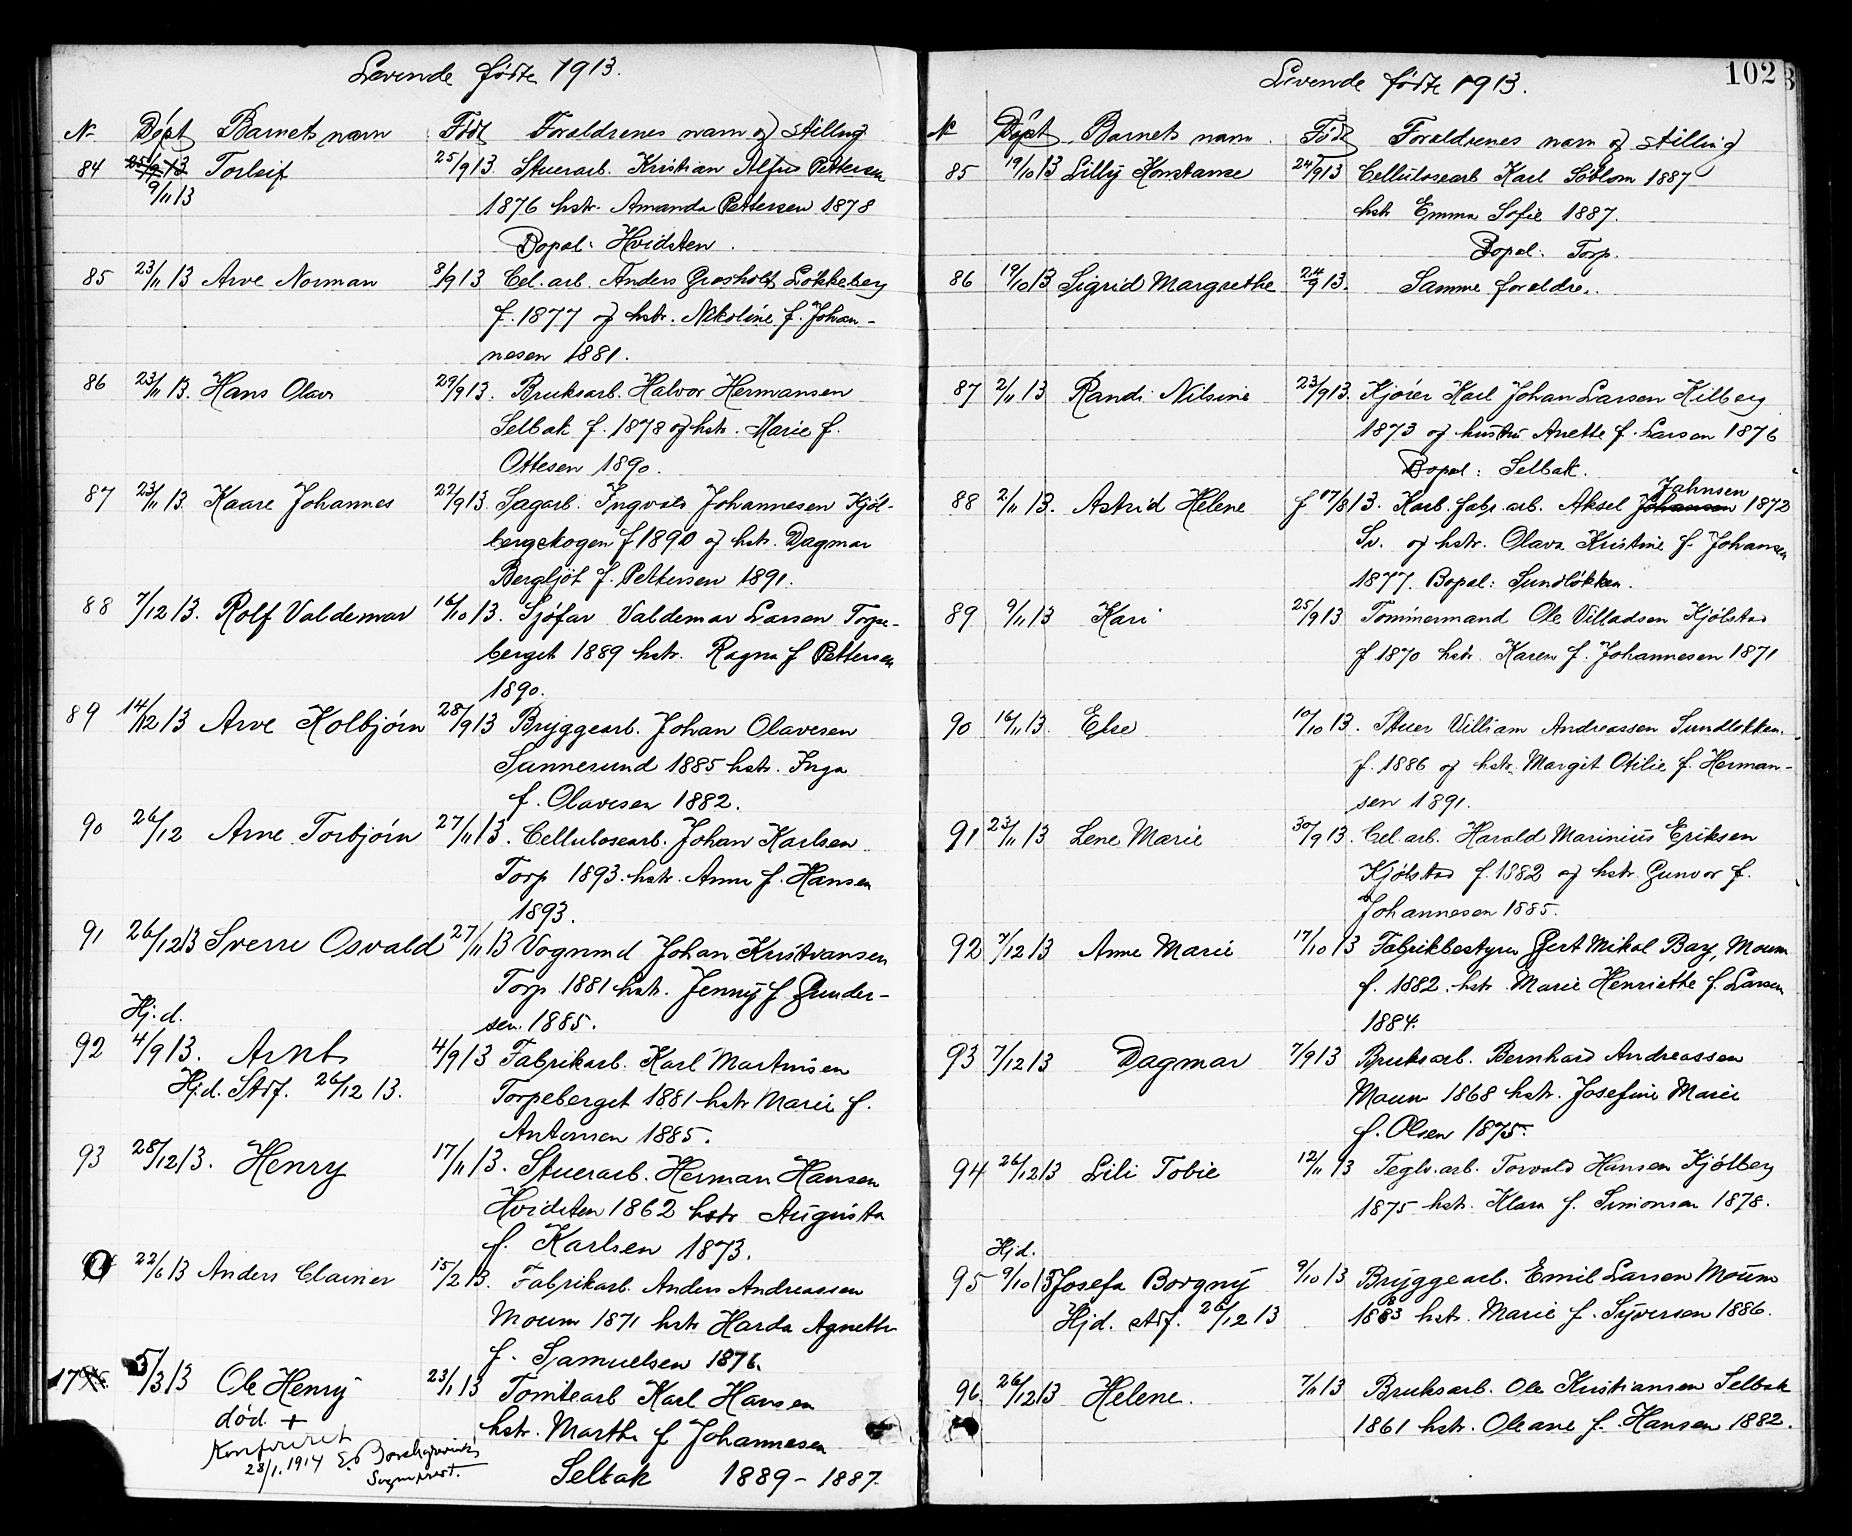 Levende fødte 1913.
No Døpt Barnets navn Født Foraldrenes navn og stilling
84 25/9 13 Torleif 25/9 13. Stuerarb. Kristian Alfred Pettersen
9/11 13
1876 hstr. Amanda Pettersen 1878
Bopæl: Hvidsten.
85 23/11 13 Arve Norman 8/9 13 Cel. arb. Anders Grosholt Løkkeberg
f. 1877 og hstr. Nikoline f. Johan-
nesen 1881.
86 23/11 13. Hans Olav 29/9 13. Bruksarb. Halvor Hermansen
Selbak f. 1878 og hstr. Marie f.
Ottesen 1890.
87 23/11 13. Kaare Johannes 22/9 13. Sagarb. Ingvald Johannesen Kjøl-
bergskogen f 1890 og hstr. Dagmar
Bergljot f. Pettersen 1891.
88 7/12 13. Rolf Valdemar 16/10 13. Sjøfar Valdemar Larsen Torpe-
berget 1889 hstr. Ragna f Pettersen
1890.
89 14/12 13 Arve Kolbjørn 28/9 13 Bryggearb. Johan Olavesen
Sannesund 1885 hstr. Inga
f. Olavesen 1882.
90 26/12 Arne Torbjørn 27/11 13. Cellulosearb. Johan Karlsen
Torp 1893. hstr. Anna f. Hansen
1893.
91 26/12 13 Sverre Osvald 27/11 13 Vognmd Johan Kristiansen
Torp 1881 hstr. Jenny f Gunder-
sen 1885.
Hj. d.
92 4/9 13. Arnt 4/9 13 Fabrikarb. Karl Martinsen
Hj.d. Stdf. 26/12 13.
Torpeberget 1881 hstr Marie f.
Antonsen 1885.
93 28/12 13. Henry 17/11 13. Stuerarb. Herman Hansen
Hvidsten 1862 hstr Augusta
f. Karlsen 1873.
22/6 13 Anders Clainer 15/2 13. Fabrikarb. Anders Andreassen
Moum 1871 hstr Harda Agnethe
f. Samuelsen 1876.
17 5/3 13 Ole Henry 23/1 13 Tomtearb Karl Hansen
død. +
hstr. Martha f Johannesen
Selbak 1889 - 1887.
Konfereret
28/1. 1914
Sogneprest.

102
Levende fødte 1913.
No Døpt Barnets navn Født Foraldrenes navn og stilling
85 19/10 13 Lilly Konstanse 24/9 13 Cellulosearb Karl Söblom 1887
hstr Emma Sofie 1887.
Bopæl: Torp.
86 19/10 13 Sigrid Margrethe 24/9 13. Samme foraldre.
87 2/11 13 Randi Nilsine 23/9 13. Kjører Karl Johan Larsen Kilberg
1873 og hustru Anette f. Larsen 1876
Bopæl: Selbak.
88 2/11 13. Astrid Helene f 17/8 13. Karb. fabr. arb. Aksel Johansen Johnsen 1872
Sv. og hstr. Olava Kristine f. Johansen
1877. Bopæl: Sundløkken.
89 9/11 13 Kari 25/9 13 Tømmermand Ole Villadsen Kjølstad
f 1870 hstr. Karen f. Johannesen 1871
90 16/11 13. Else 10/10 13. Stuer Villiam Andreassen Sundløkken.
f. 1886 og hstr. Margit Otilie f. Herman-
sen 1891.
91 23/11 13 Lene Marie 30/9 13. Cel. arb. Harald Marinius Eriksen
Kjølstad f. 1882 og hstr. Gunvor f.
Johannesen 1885.
92 7/12 13 Anne Marie 17/10 13 Fabrikbestyrer Gert Mikal Bay, Moum
f. 1882. hstr. Marie Henriette f. Larsen
1884.
93 7/12 13 Dagmar 7/9 13 Bruksarb. Bernhard Andreassen
Moum 1868 hstr. Josefine Marie
f. Olsen 1875.
94 26/12 13 Lili Tobie 12/11 13 Teglv.arb. Torvald Hansen Kjølberg
1875 hstr. Klara f. Simonsen 1878.
Hjd.
95 9/10 13 Josefa Borgny 9/10 13 Bryggearb. Emil Larsen Moum
Hjd. stdf. 26/12 13
1883 hstr. Marie f. Syversen 1886.
96. 26/12 13 Helene. 7/11 13 Bruksarb. Ole Kristiansen Selbak
1861 hstr. Oleane f. Hansen 1882.